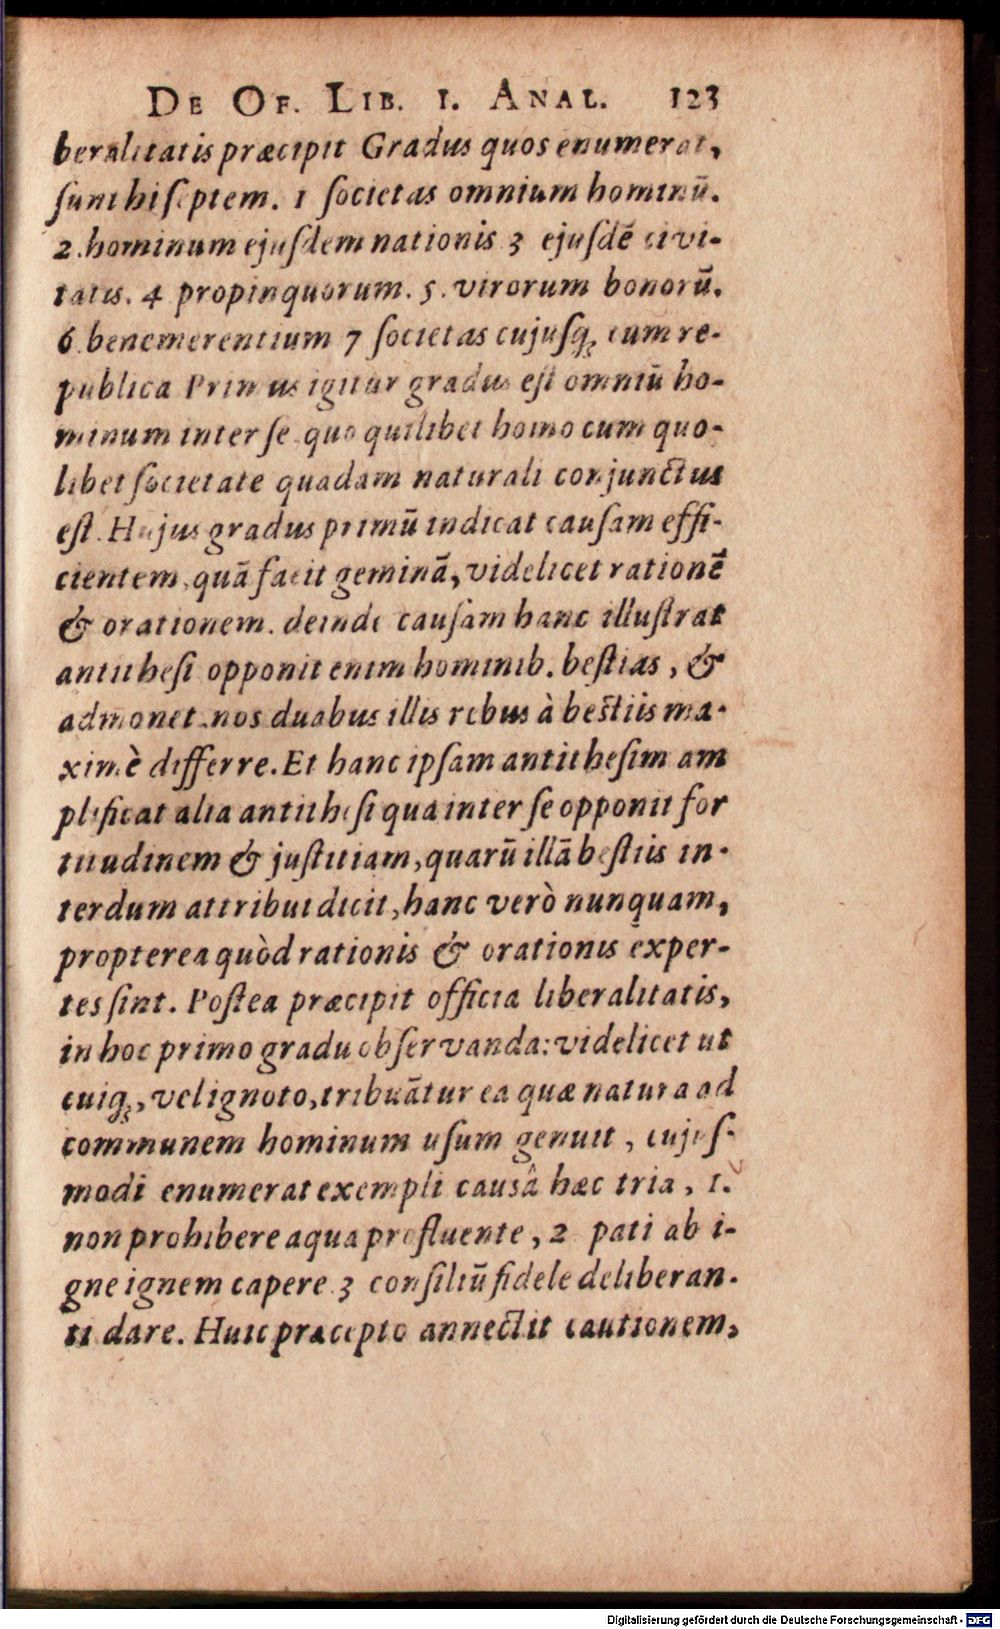 DE OF. LIB. I. ANAL. 123
beralitatis præcipit Gradus quos enumerat,
ſunt hi ſeptem. 1 ſocietas omnium hominū.
2. hominum ejuſdem nationis 3 ejuſdē civi-
tatis. 4 propinquorum. 5. virorum bonorū.
6. benemerentium 7 ſocietas cujuſq; cum re-
publica Primus igitur gradus eſt omniū ho-
minum inter ſe quo quilibet homo cum quo-
libet ſocietate quadam naturali conjunctus
eſt. Hujus gradus primū indicat cauſam effi-
cientem, quā facit geminā, videlicet rationē
& orationem. deinde cauſam hanc illuſtrat
antitheſi opponit enim hominib. beſtias, &
admonet nos duabus illis rebus à beſtiis ma-
ximè differre. Et hanc ipſam antitheſim am
plificat alia antitheſi qua inter ſe opponit for
titudinem & juſtitiam, quarū illā beſtiis in-
terdum attribui dicit, hanc verò nunquam,
propterea quòd rationis & orationis exper-
tes ſint. Poſtea præcipit officia liberalitatis,
in hoc primo gradu obſervanda: videlicet ut
cuiq;, vel ignoto, tribuātur ea quæ natura ad
communem hominum uſum genuit, cujuſ-
modi enumerat exempli causâ hæc tria, 1.
non prohibere aqua profluente, 2 pati ab i-
gne ignem capere 3 conſiliū fidele deliberan-
ti dare. Huic præcepto annectit cautionem,
Digitalisierung gefördert durch die Deutsche Forschungsgemeinschaft - DFG